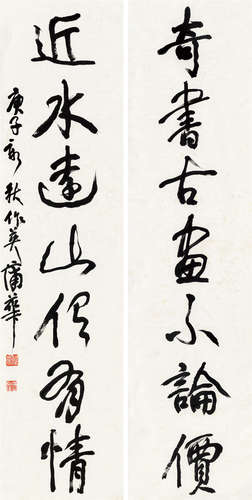 奇書古画不論價
近水遠山俱有情
庚子新秋作英蒲華